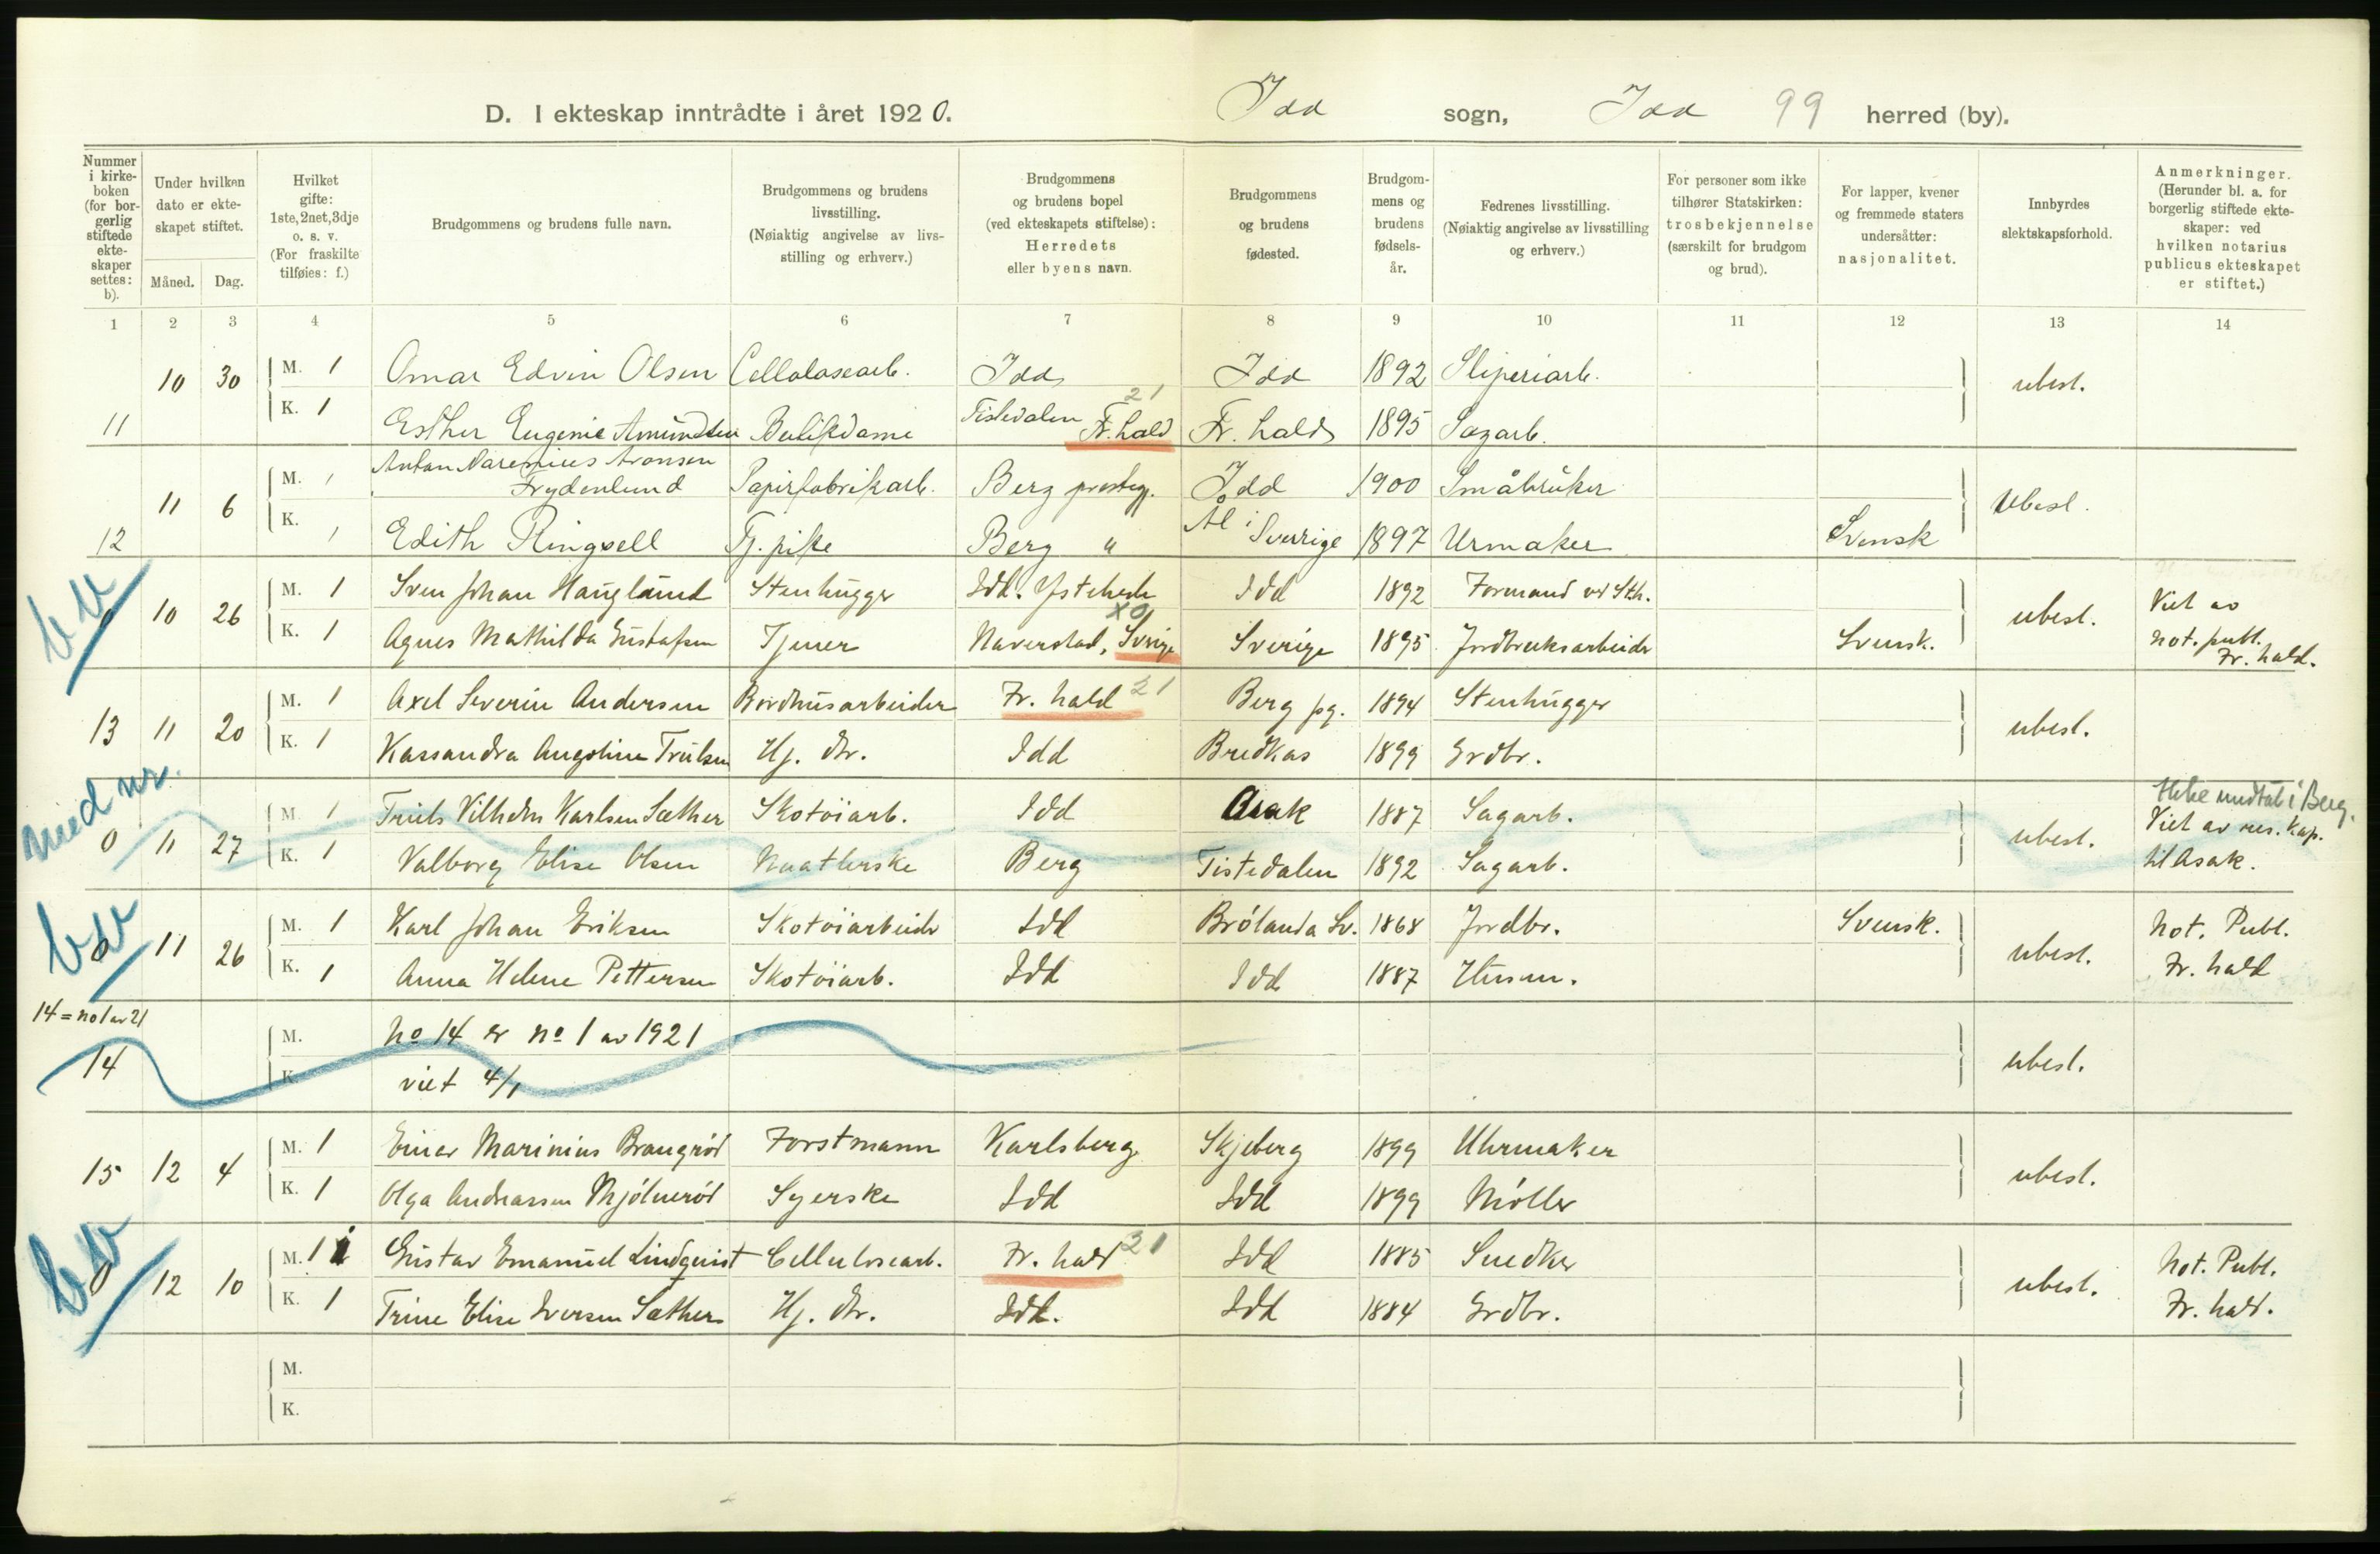 D. I ekteskap inntrådte i året 1920. Idd sogn, Idd 99 herred (by).
Nummer i kirkeboken (for borgerlig stiftede ekteskaper settes: b).
Under hvilken dato er ekteskapet stiftet.
Måned. Dag.
Hvilket gifte: 1ste, 2net, 3dje o. s. v. (For fraskilte tilføies: f.)
Brudgommens og brudens fulle navn.
Brudgommens og brudens livsstilling. (Nøiaktig angivelse av livsstilling og erhverv.)
Brudgommens og brudens bopel (ved ekteskapets stiftelse): Herredets eller byens navn.
Brudgommens og brudens fødested.
Brudgommens og brudens fødselsår.
Fedrenes livsstilling. (Nøiaktig angivelse av livsstilling og erhverv.)
For personer som ikke tilhører Statskirken: trosbekjennelse (særskilt for brudgom og brud).
For lapper, kvener og fremmede staters undersåtter: nasjonalitet.
Innbyrdes slektskapsforhold.
Anmerkninger. (Herunder bl. a. for borgerlig stiftede ekteskaper: ved hvilken notarius publicus ekteskapet er stiftet.)
1 2 3 4 5 6 7 8 9 10 11 12 13 14
10 30 M. 1 Omar Edvin Olsen Cellulosearb. Idd Idd 1892 Sliperiarb. ubesl.
11 K. 1 Esther Eugenie Amundsen Butikdame Tistedalen Fr. hald 21 Fr. hald 1895 Sagarb.
11 6 M. 1 Anton Narenius Aronsen Frydenlund Papirfabrikarb. Berg prestegj. Idd 1900 Småbruker Ubesl.
12 K. 1 Edith Ringsell Tj. pike Berg " Ål i Sverige 1897 Urmaker Svensk
bv
0 10 26 M. 1 Sven Johan Hauglund Stenhugger Idd. Ystehede Idd 1892 Formand ved Sth. ubesl. Viet av
K. 1 Agnes Mathilda Gustafsen Tjener Naverstad, Sverige X0 Sverige 1895 Jordbruksarbeider Svensk. not. publ. Fr. hald.
13 11 20 M. 1 Axel Severin Andersen Bordhusarbeider Fr. hald 21 Berg pg. 1894 Stenhugger ubesl.
K. 1 Kassandra Augoline Trulsen Hj. dtr. Idd Bredkas 1899 Grdbr.
med nr.
0 11 27 M. 1 Truls Vilhelm Karlsen Sæther Skotöiarb. Idd Asak 1887 Sagarb. ubesl. Ikke medtat i Berg. Viet av res. kap.
K. 1 Valborg Elise Olsen Naatlerske Berg Tistedalen 1892 Sagarb. til Asak.
bv
0 11 26 M. 1 Karl Johan Eriksen Skotöiarbeider Idd Brölanda Sv. 1868 Jordbr. Svensk. ubesl. Not. Publ.
K. 1 Anna Helene Pettersen Skotöiarb. Idd Idd 1887 Husm. Fr. hald
14 = no 1 av 21
14 M. No 14 er no 1 av 1921 ubesl.
K. viet 4/1
15 12 4 M. 1 Einar Marinius Braugröd Forstmann Karlsberg Skjeberg 1899 Uhrmaker ubesl.
K. 1 Olga Andreassen Mjölneröd Syerske Idd Idd 1899 Möller
bv
0 12 10 M. 1 Gustav Emanuel Lindquist Cellulosearb. Fr. hald 21 Idd 1885 Snedker ubesl. Not. Publ.
K. 1 Trine Elise Iversen Sæther Hj. dtr. Idd. Idd 1884 Grdbr. Fr. hald.
M.
K.